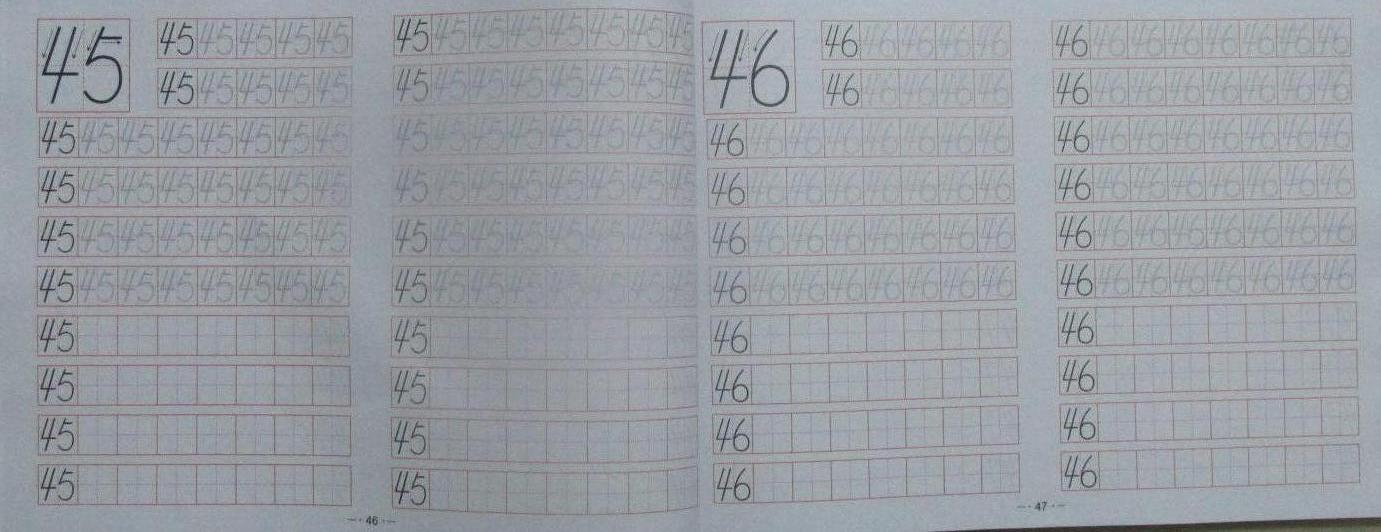 45
45 45 45 45 45
45 45 45 45 45
45 45 45 45 45 45 45 45
45 45 45 45 45 45 45 45
45 45 45 45 45 45 45 45
45 45 45 45 45 45 45 45
45
45
45
45
45 45 45 45 45 45 45 45
45 45 45 45 45 45 45 45
45 45 45 45 45 45 45 45
45 45 45 45 45 45 45 45
45 45 45 45 45 45 45 45
45 45 45 45 45 45 45 45
45
45
45
45
—·46·—
46
46 46 46 46 46
46 46 46 46 46
46 46 46 46 46 46 46 46
46 46 46 46 46 46 46 46
46 46 46 46 46 46 46 46
46 46 46 46 46 46 46 46
46
46
46
46
46 46 46 46 46 46 46 46
46 46 46 46 46 46 46 46
46 46 46 46 46 46 46 46
46 46 46 46 46 46 46 46
46 46 46 46 46 46 46 46
46 46 46 46 46 46 46 46
46
46
46
46
—·47·—